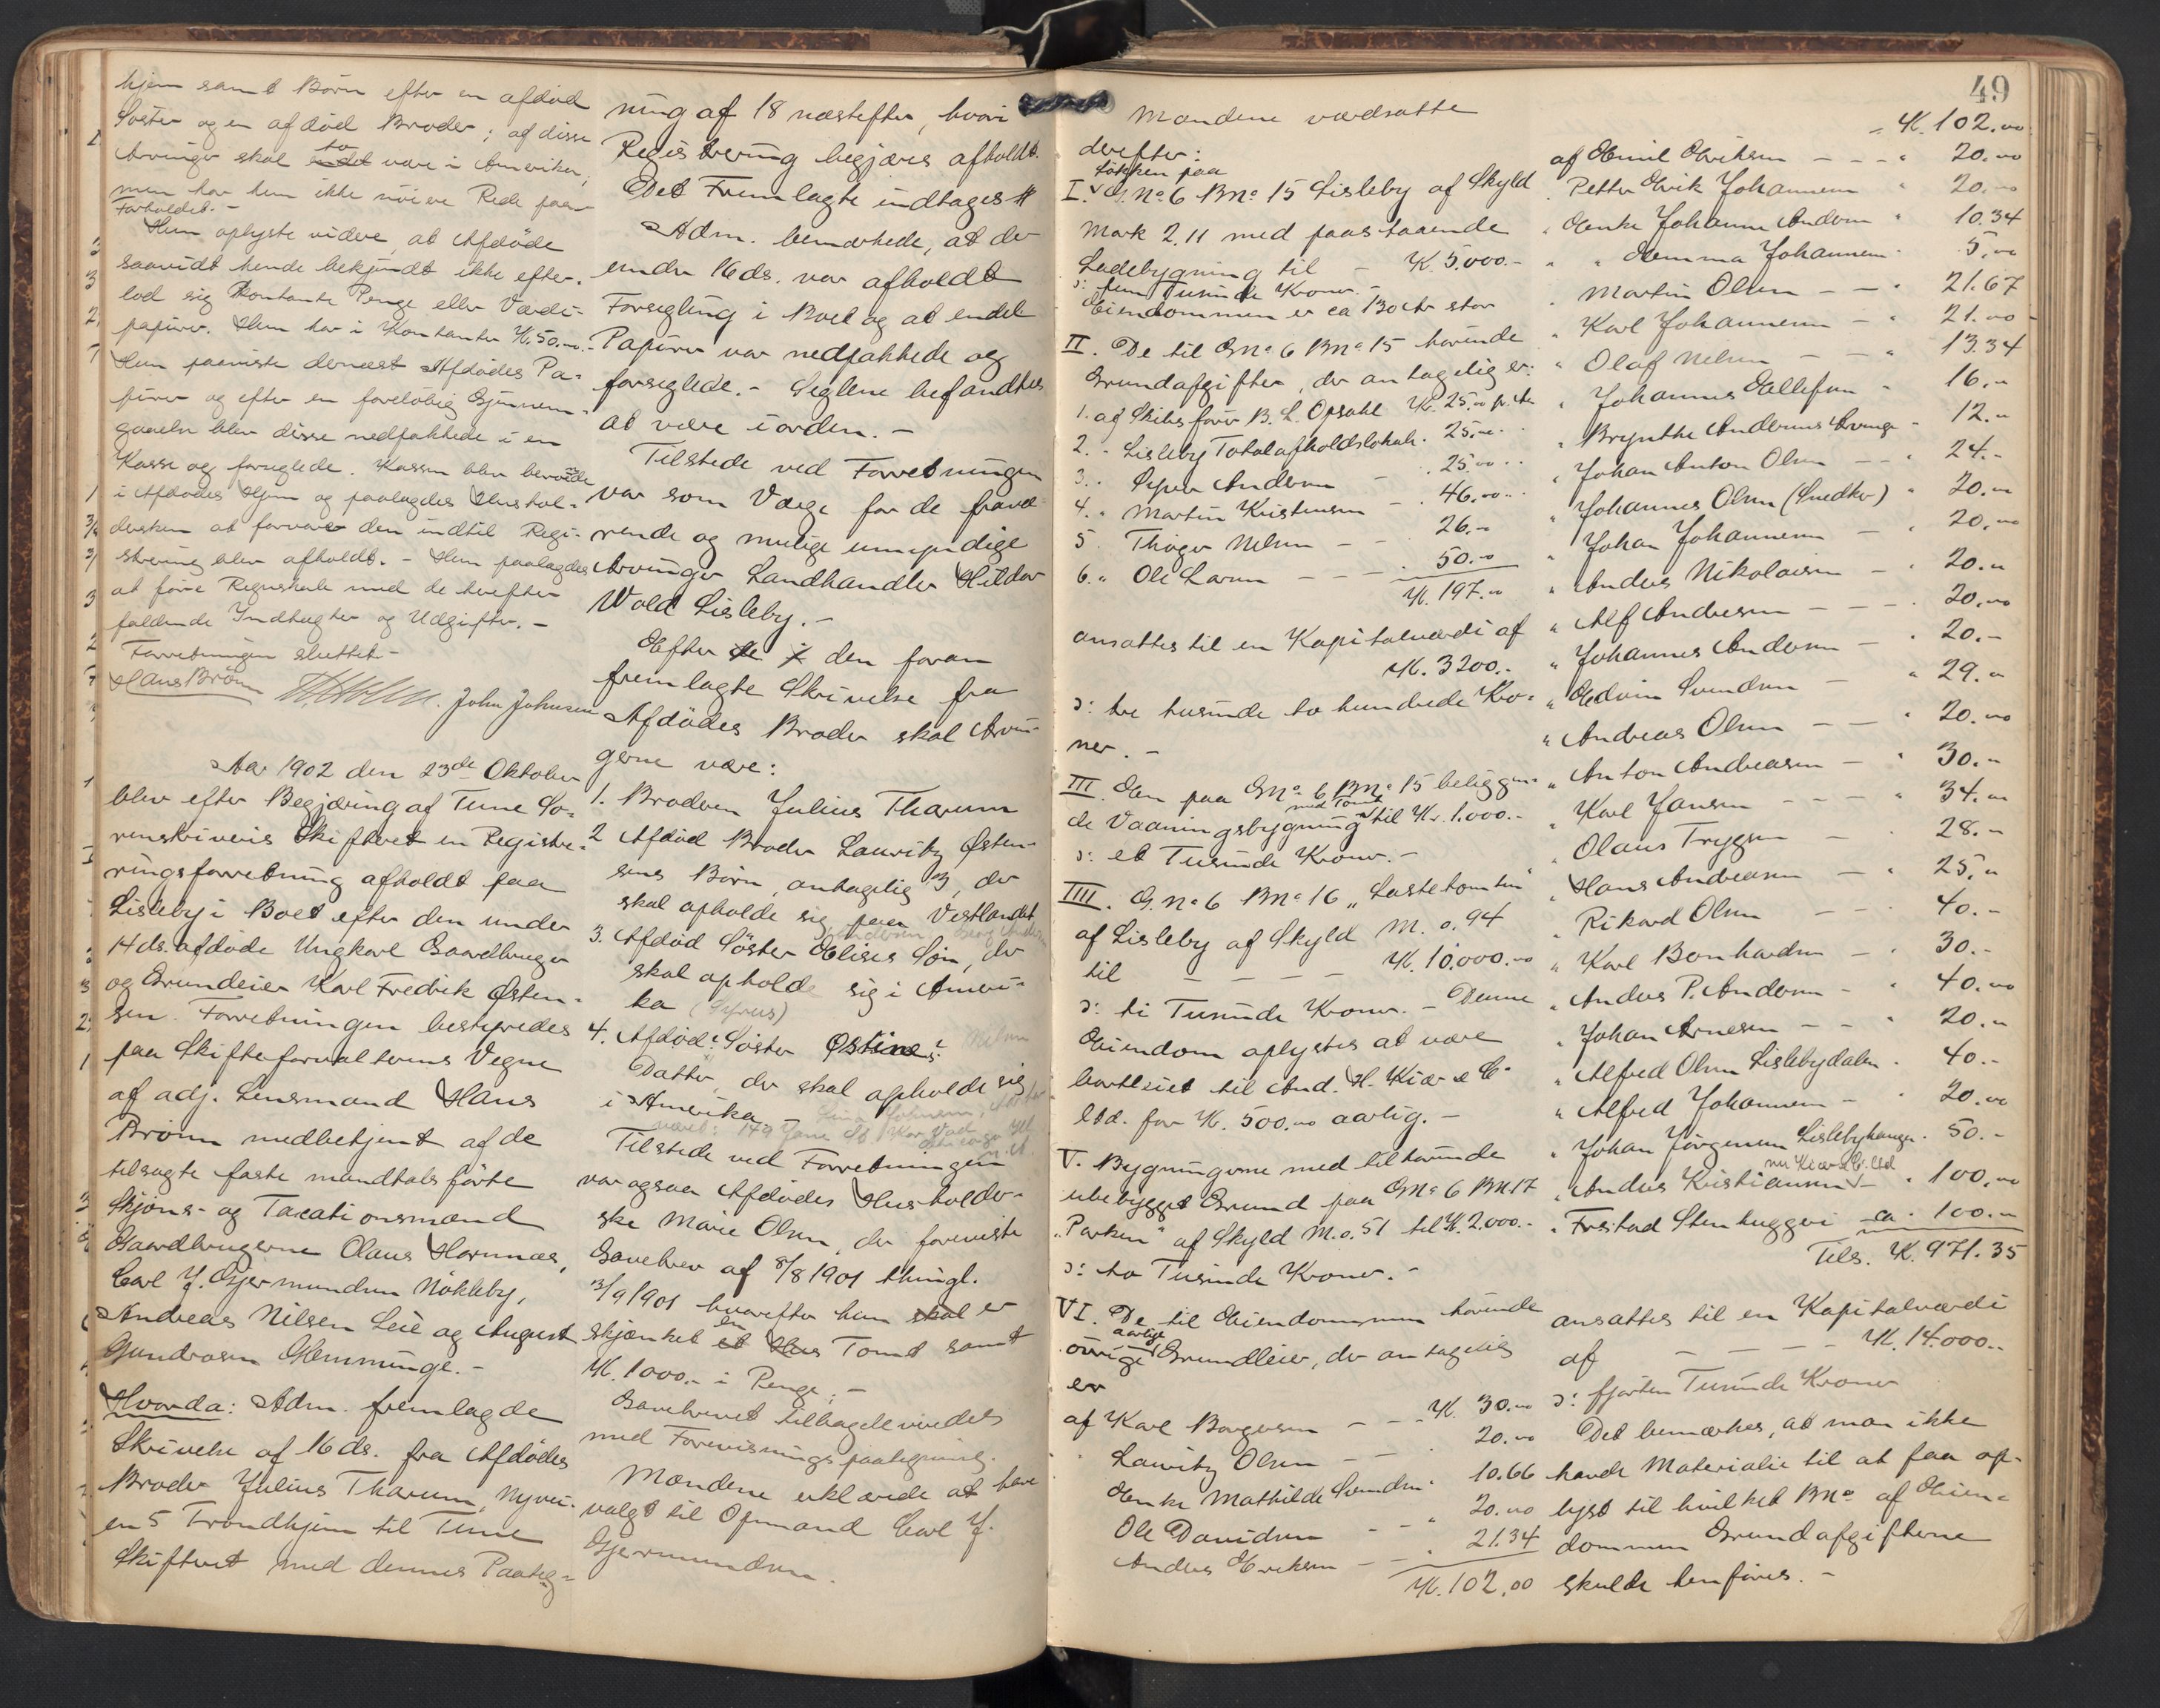 hjem samt Børn efter en afdød
Søster og en afdød Broder; af disse
Arvinger skal to være i Amerika,
men har hun ikke nøiere Rede paa
Forholdet. -
Hun oplyste videre, at Afdøde
saavidt hende bekjendt ikke efter-
lod sig Kontante Penge eller Værdi-
papirer. Hun har i Kontanter K. 50.00.-
Hun paaviste dernæst Afdødes Pa-
pirer og efter en foreløbig Gjennem-
gaaelse blev disse nedpakkede i en
Kasse og forseglede. Kassen blev beroende
i Afdødes Hjem og paalagdes Hushol-
dersken at forvare den indtil Regi-
strering blev afholdt. - Hun paalagdes
at føre Regnskab med de herefter
faldende Indtægter og Udgifter. -
Forretningen sluttet -
Hans Brønn John Johnsen
Aar 1902 den 23de Oktober
blev efter Begjæring af Tune So-
renskriveris Skifteret en Registre-
ringsforretning afholdt paa
Lisleby i Boet efter den under
14 ds. afdøde Ungkarl Gaardbruger
og Grundeier Karl Fredrik Østen-
sen. Forretningen bestyredes
paa Skifteforvalterens Vegne
af adj. Lensmand Hans
Brønn medbetjent af de
tilsagte faste mandtalsførte
Skjøns- og Taxationsmænd
Gaardbrugerne Olaus Hornnæs,
Carl J. Gjermundsen Nøkleby,
Andreas Nilsen Leie og August
Gundrosen Glemminge. -
Hvorda: Adm. fremlagde
Skrivelse af 16 ds. fra Afdødes
Broder Julius Tharum, Nyvei-
en 5 Trondhjem til Tune
Skifteret med dennes Paateg-
ning af 18 næstefter, hvori
Registrering begjæres afholdt.
Det Fremlagte indtages #
Adm. bemærkede, at der
under 16 ds. var afholdt
Forsegling i Boet og at endel
Papirer var nedpakkede og
forseglede. - Seglene befandtes
at være i orden. -
Tilstede ved Forretningen
var som Værge for de fravæ-
rende og mulige umyndige
Arvinger Landhandler Hildor
Wold Lisleby. -
Efter den foran
fremlagte Skrivelse fra
Afdødes Broder skal Arvin-
gerne være:
1. Broderen Julius Tharum
2 Afdød Broder Lauritz Østen-
sens Børn, antagelig 3, der
skal opholde sig paa Vestlandet
3. Afdød Søster Elises Søn, der
skal opholde sig i Ameri-
ka (Gyrus)
4. Afdød Søster Østines Nilsen
Datter, der skal opholde sig
i Amerika. -
Tilstede ved Forretningen
var ogsaa Afdødes Husholder-
ske Marie Olsen, der foreviste
Gavebrev af 8/8 1901 thingl.
13/9 1901 hvorefter hun skal er
skjænket en et Hus Tomt samt
K. 1000.- i Penge. -
Gavebrevet tilbageleveredes
med Forevisningspaategning.
Mændene erklærede at have
valgt til Opmand Carl J.
Gjermundsen.
49
Mændene værdsatte
derefter:
Løkken paa
I. G.No 6 BNo 15 Lisleby af Skyld
Mark 2.11 med paastaaende
Ladebygning til - K. 5.000.-
ɔ: fem Tusinde Kroner. -
Eiendommen er ca 130 Ar stor
II. De til GNo 6 BNo 15 hørende
Grundafgifter, der antagelig er:
1. af Skibsfører B. L. Opsahl K. 25.00 pr. Aar
2. - Lisleby Totalafholdslokale. 25.00. .
3. . Syver Andersen - . 25.00 . .
4. " Martin Kristensen - . 46.00 . .
5. Thøger Nelsen - - 26.00
6. " Ole Larsen - - - . 50.00
K. 197.00
ansattes til en Kapitalværdi af
K. 3200.-
ɔ: tre tusinde to hundrede Kro-
ner. -
III. Den paa GNo 6 BNo 15 beliggen-
de Vaaningsbygning med Tomt til Kr. 1.000.-
ɔ: et Tusinde Kroner. -
IIII. G.No 6 BNo 16 "Lastetomten"
af Lisleby af Skyld M. 0.94
til - - - K. 10.000.00
ɔ: ti Tusinde Kroner. - Denne
Eiendom oplystes at være
bortleiet til And. H. Kiær & Co
ltd. for K. 500.00 aarlig. -
V. Bygningerne med tilhørende
ubebygget Grund paa GNo 6 BN 17
"Parken" af Skyld M. 0.51 til K. 2.000.-
ɔ: to Tusinde Kroner. -
VI. De til Eiendommen hørende
øvrige aarlige Grundleier, der antagelig
er
af Karl Borgersen - - - K. 30.00
" Lauritz Olsen - - . 20.00
Enke Mathilde Svendsen . 10.66
Ole Davidsen - - " 20.00
Anders Eriksen - - . 21.34
K. 102.00
- K. 102.00
af Emil Eriksen - - - " 20.00
. Petter Erik Johannesen " 20.00
. Enke Johanne Andersen " 10.34
" " Hemma Johannesen . 5.00
. Martin Olsen - - . 21.67
" Karl Johannesen - " 21.00
" Olaf Nelsen - - " 13.34
. Johannes Tallefsen " 16.00
" Brynthe Andersens Arvinger " 12.00
. Johan Anton Olsen - . 24.-
" Johannes Olsen (Snedker) " 20.00
" Johan Johannesen - . 20.00
. Anders Nikolaisen - . 20.00
" Alf Andresen - - - . 20.00
" Johannes Andersen - . 20.-
" Edvin Svendsen - " 29.00
" Andreas Olsen - - " 20.00
" Anton Andreasen - " 30.00
. Karl Jansen - - - " 34.00
. Olaus Trygsen - . 28.-
. Hans Andreasen - " 25.00
. Rikard Olsen - - . 40.-
" Karl Bernhardsen - . 30.-
" Anders P. Andersen - " 40.00
. Johan Arnesen - - " 20.00
" Alfred Olsen Lislebydalen . 40.-
" Alfred Johannesen - . 20.00
. Johan Jørgensen Lislebyhaugen . 50.-
nu Kiær & Co. ltd
. Anders Kristiansen - . 100.00
. Fr.stad Stenhuggeri ca . 100.00
Tils. K. 971.35
ansattes til en Kapitalværdi
af - - - - K. 14.000.-
ɔ: fjorten Tusinde Kroner
Det bemærkes, at man ikke
havde Materialie til at faa op-
lyst til hvilket BNo af Eien-
dommen Grundafgifterne
skulde henføres. -